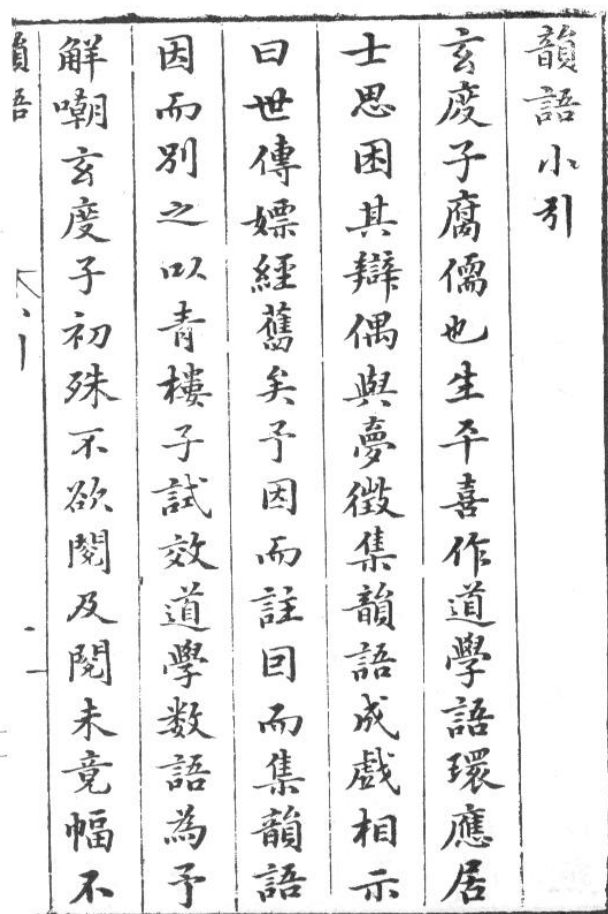 韻語小引
玄度子腐儒也生平喜作道學語環應居
士思困其辯偶與夢徵集韻語成戲相示
曰世傳嫖經舊矣予因而註因而集韻語
因而別之以青樓子試效道學数語為予
解嘲玄度子初殊不欲閱及閱未竟幅不
韻語